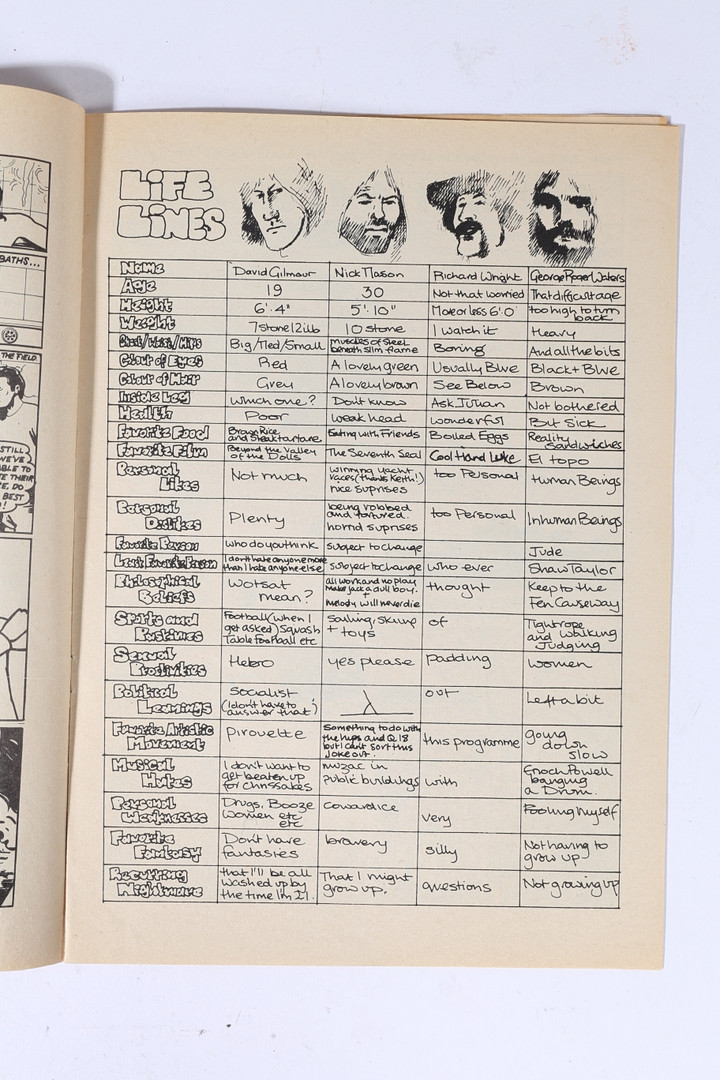 BATHS...
THE FIELD
STILL
WE'VE
ABLE TO
THEIR
E, DO
BEST
LIFE
LINES
Name David Gilmour Nick Mason Richard Wright George Roger Waters
Age 19 30 Not that worried That difficult age
Height 6'.4" 5'.10" More or less 6'.0" too high to turn
back
Weight 7 stone 12 lb 10 stone I watch it Heavy
Chest/Waist/Hips Big/Med/Small muscles of steel
beneath slim frame Boring And all the bits
Colour of Eyes Red A lovely green Usually Blue Black + Blue
Colour of Hair Grey A lovely brown See Below Brown
Inside Leg Which one? Don't know Ask Julian Not bothered
Health Poor weak head wonderful But Sick
Favorite Food Brown Rice
and Steak tartare Eating with Friends Boiled Eggs Reality
Sandwiches
Favorite Film Beyond the Valley
of the Dolls The Seventh Seal Cool Hand Luke El topo
Personal
Likes Not much winning yacht
races (thanks Keith!)
nice suprises too Personal Human Beings
Personal
Dislikes Plenty being robbed
and tortured.
horrid suprises too Personal Inhuman Beings
Favorite Person who do you think subject to change Jude
Least Favorite Person I don't hate anyone more
than I hate anyone else subject to change who ever Shaw Taylor
Philosophical
Beliefs Wotsat
mean? all work and no play
make jack a dull boy.
+
Melody will never die thought Keep to the
Fen Causeway
Sports and
Pastimes Football (when I
get asked) Squash
Table football etc sailing, skiing
+ toys of Tightrope
and walking
Judging
Sexual
Proclivities Hetro yes please padding Women
Political
Leanings Socialist
(I don't have to
answer that) out Left a bit
Favorite Artistic
Movement Pirouette Something to do with
the hips and Q.18
but I can't sort this
joke out. this programme going
down
slow
Musical
Hates I don't want to
get beaten up
for Chrissakes muzac in
public buildings with Enoch Powell
banging
a Drum.
Personal
Weaknesses Drugs, Booze
Women etc
etc cowardice very Fooling myself
Favorite
Fantasy Don't have
fantasies bravery silly Not having to
grow up
Recurring
Nightmare that I'll be all
washed up by
the time I'm 21. That I might
grow up. questions Not growing up